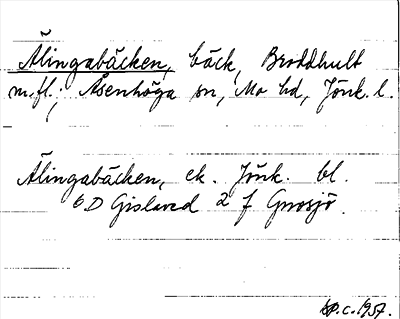 Älingabäcken, bäck, Broddhult
m.fl.; Åsenhöga sn, Mo hd, Jönk. l.
Älingabäcken, ek. Jönk. bl.
6 D Gislaved 2 f Gnosjö.
1957.